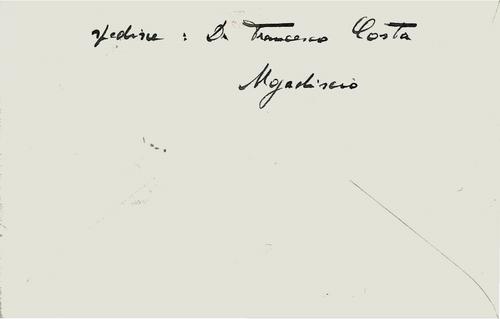 spedisce : Dr Francesco Costa
Mgadiscio